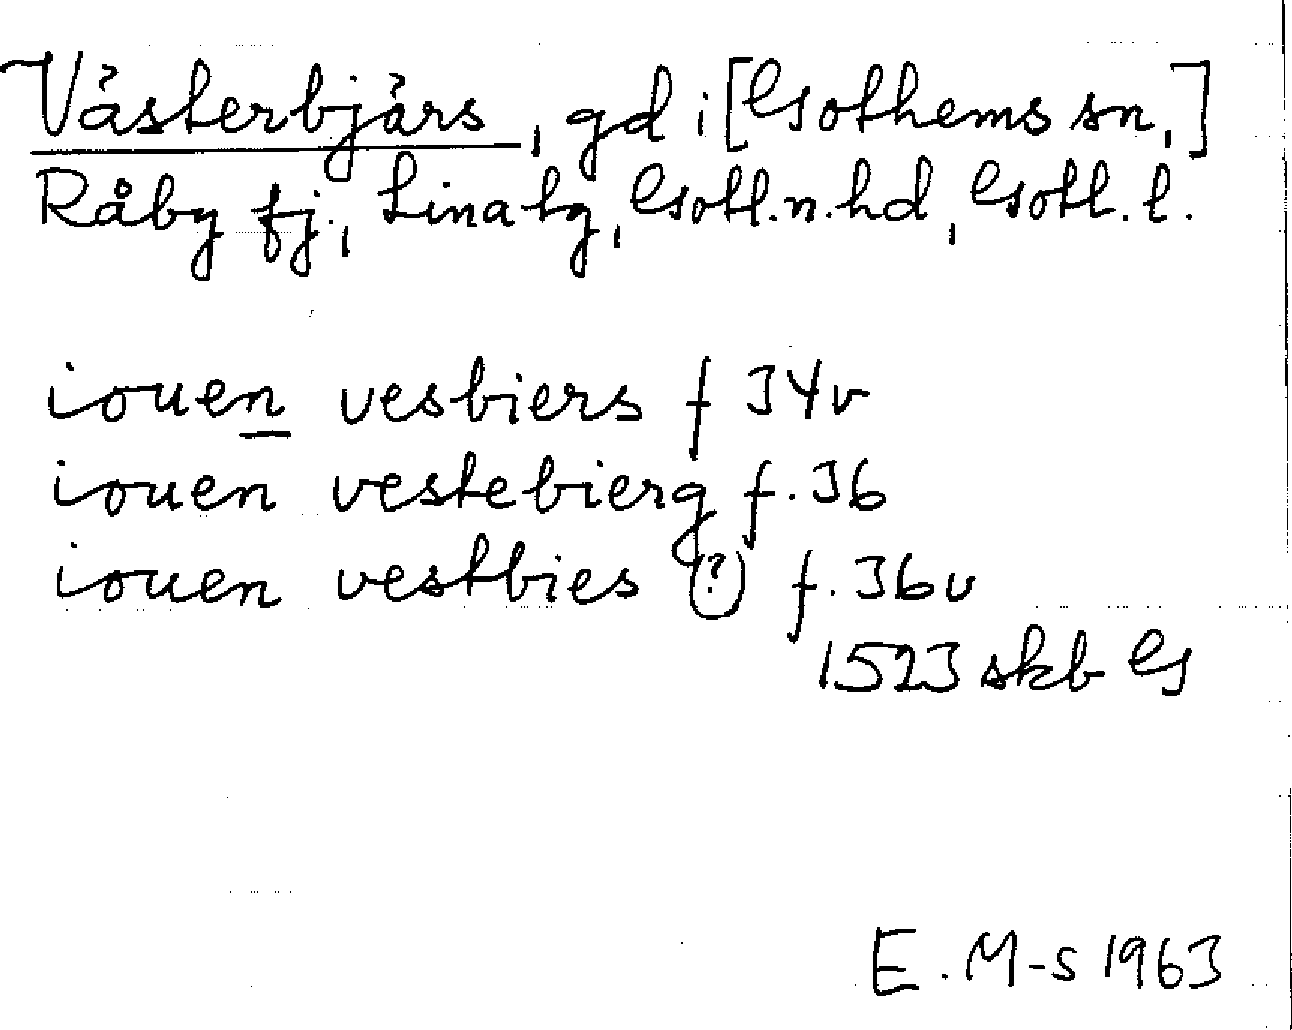 Västerbjärs, gd i [Gothems sn,]
Råby fj., Lina tg, Gotl.n.hd, Gotl.l.
iouen vesbiers f 34v
iouen vestebierg f. 36
iouen vestbies (?) f. 36v
1523 skb G
E. M-s 1963